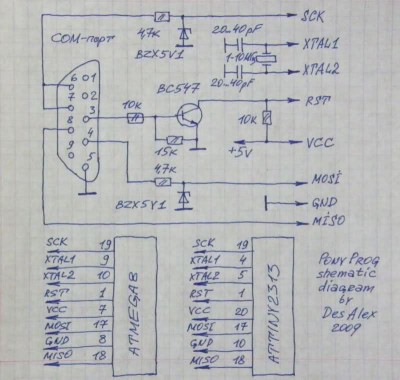 COM-порт
4,7к
BZX5V1
20..40pF
1-10MHz
20..40pF
SCK
XTAL1
XTAL2
6
1
7
2
8
3
9
4
5
10к
BC547
15к
4,7к
BZX5V1
RST
10к
VCC
+5V
MOSI
GND
MISO
SCK 19
XTAL1 9
XTAL2 10
RST 1
VCC 7
MOSI 17
GND 8
MISO 18
ATMEGA8
SCK 19
XTAL1 4
XTAL2 5
RST 1
VCC 20
MOSI 17
GND 10
MISO 18
ATTINY2313
PONY PROG
shematic
diagram
by
Des Alex
2009